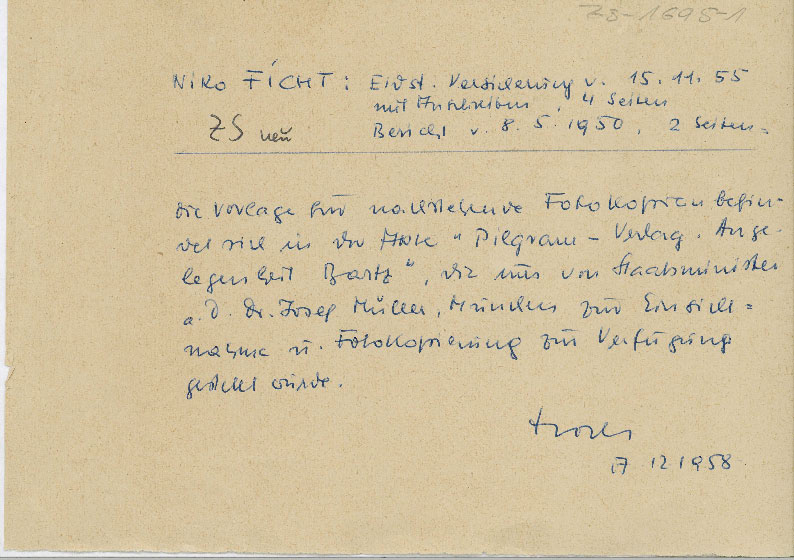 ZS-1695-1
NIKO FICHT: Eidst. Versicherung v. 15.11.55
mit Anschreiben, 4 Seiten
ZS neu Bericht v. 8.5.1950, 2 Seiten=
Die Vorlage für nachstehende Fotokopien befin-
det sich in der Akte "Pilgram-Verlag. Ange-
legenheit Bartz", die uns von Staatsminister
a.D. Dr. Josef Müller, München zur Einsicht=
nahme u. Fotokopierung zur Verfügung
gestellt wurde.
17 12 1958